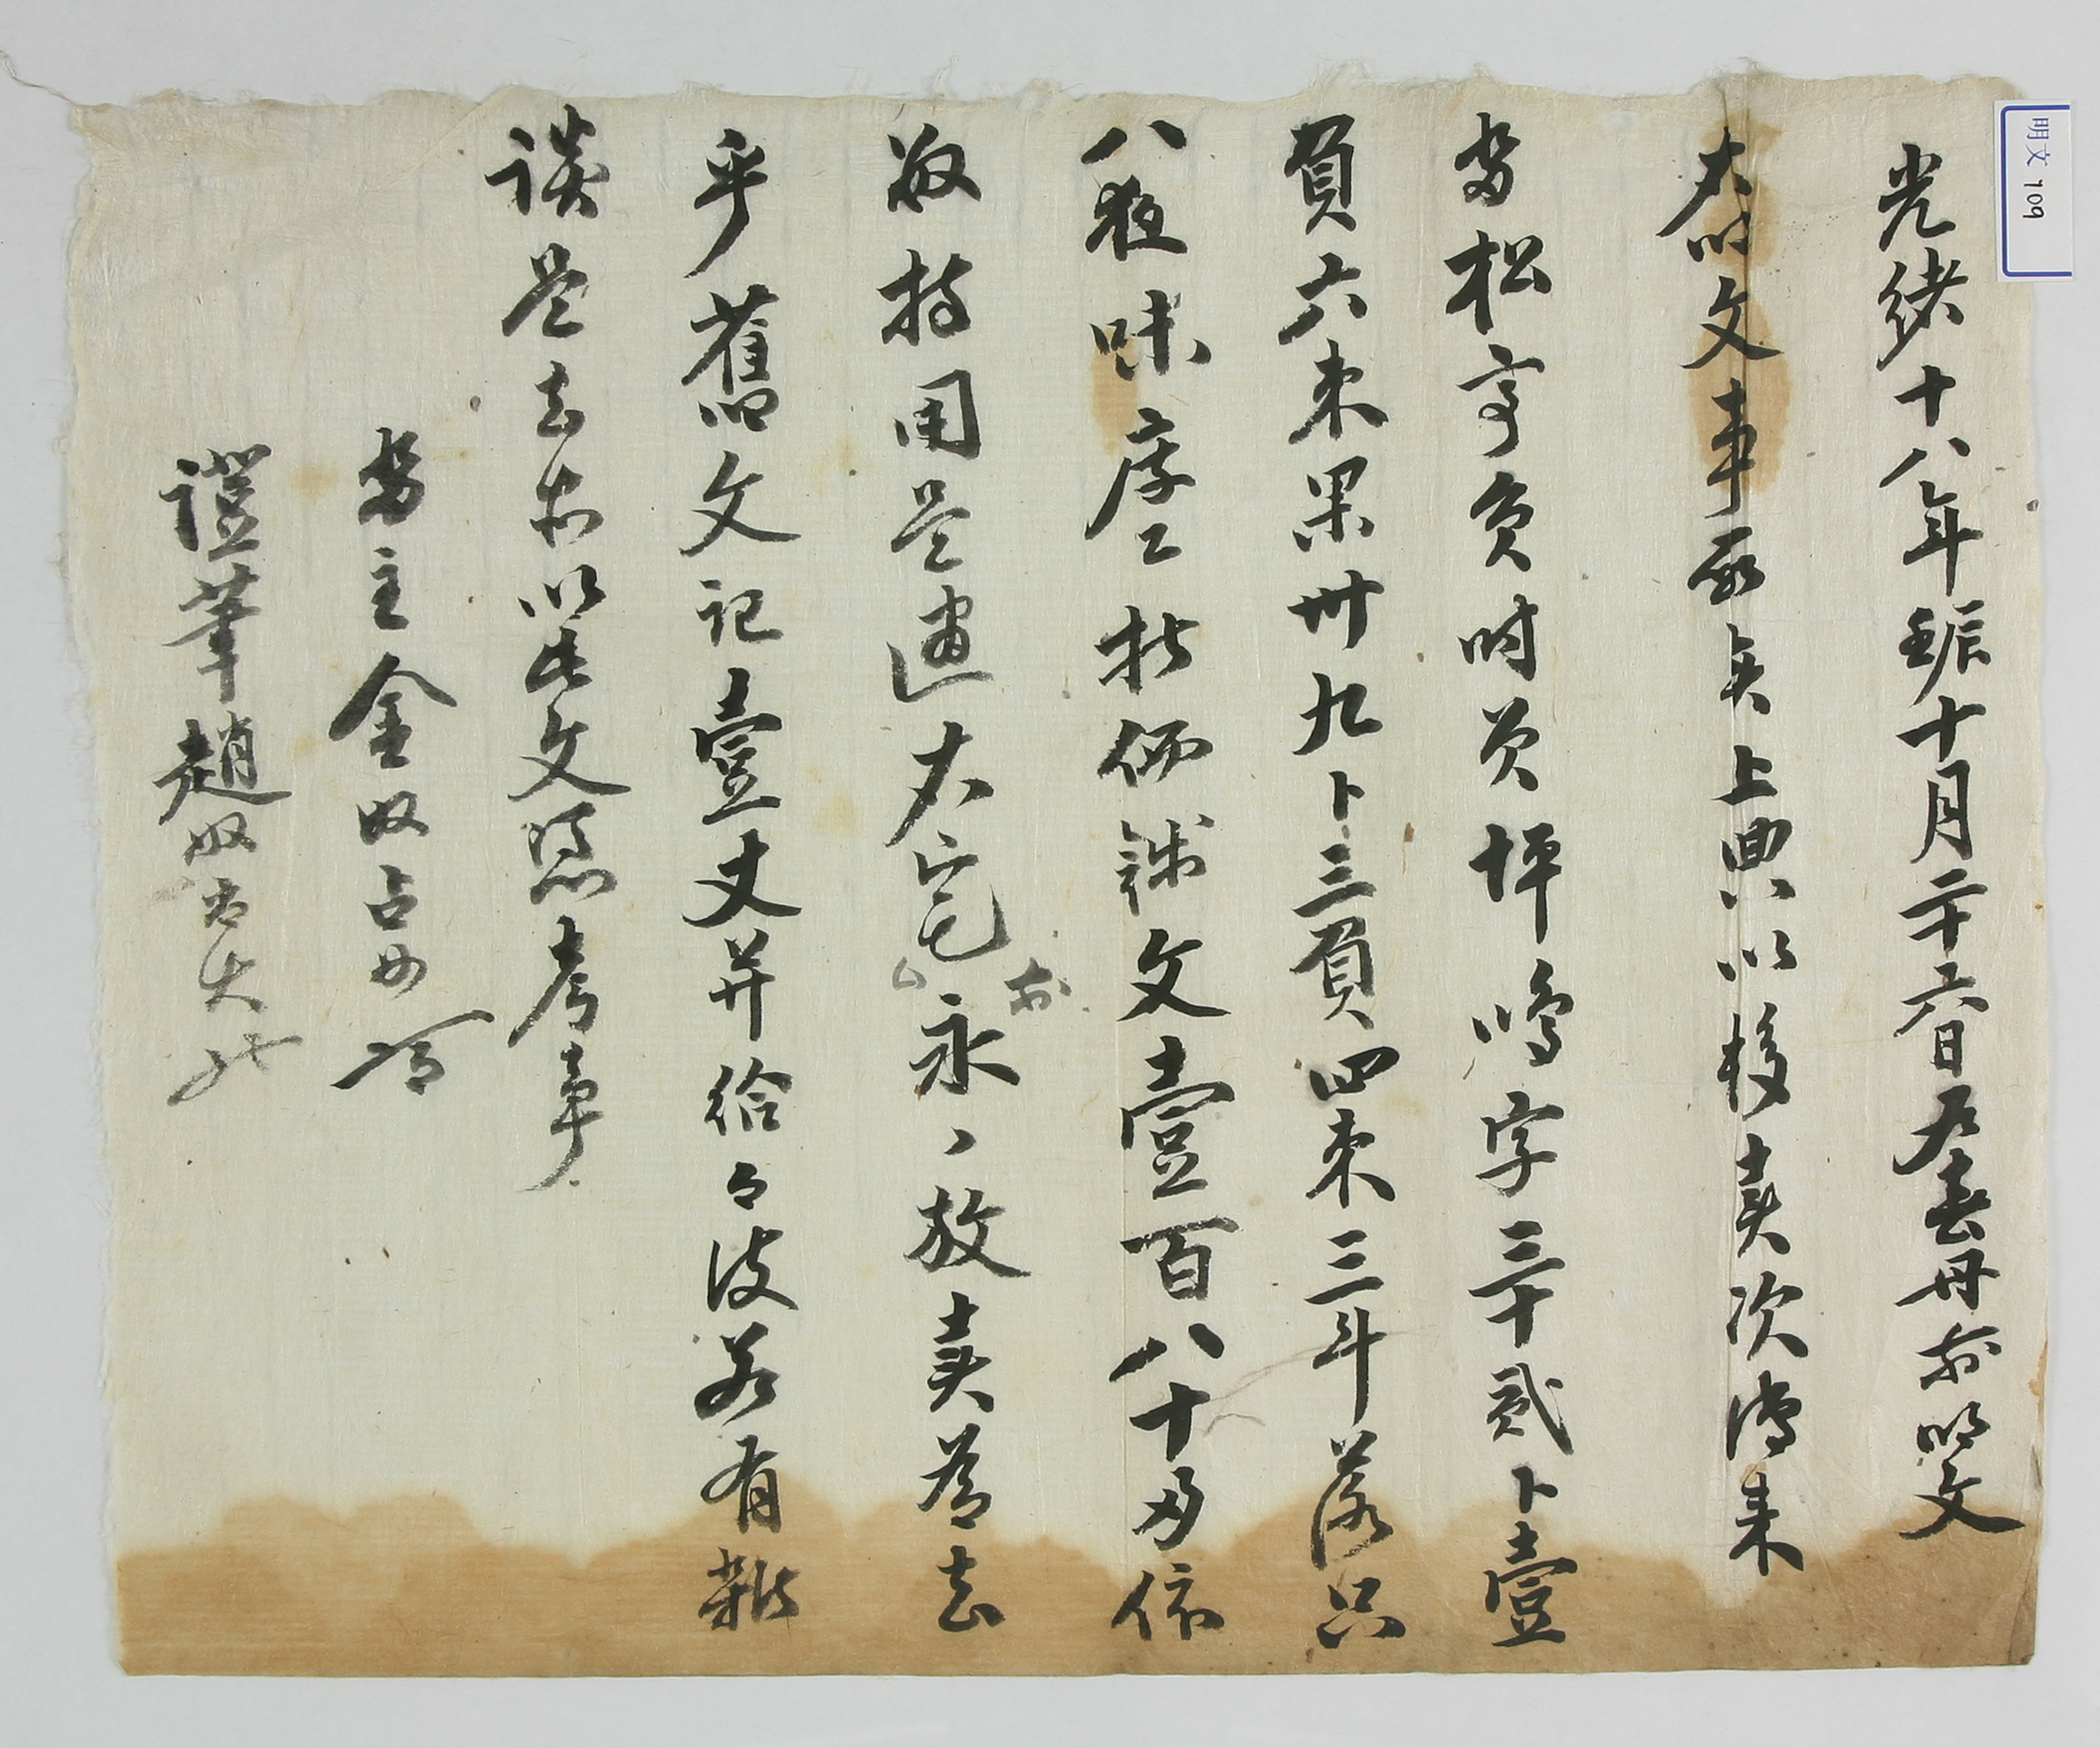 光緖十八年壬辰十月二十六日 前明文
右明文事段矣上典以移賣次傳來
畓松亭員時員坪鳴字三十貳卜壹
負六束果卅九卜三負四束三斗落只
八夜味庫乙折価錢文壹百八十兩依
數捧用是遣右宅前永〻放賣爲去
乎舊文記壹丈并給爲㫆後若有雜
談是去等以此文憑考事
畓主金奴占
證筆趙奴
明文 709